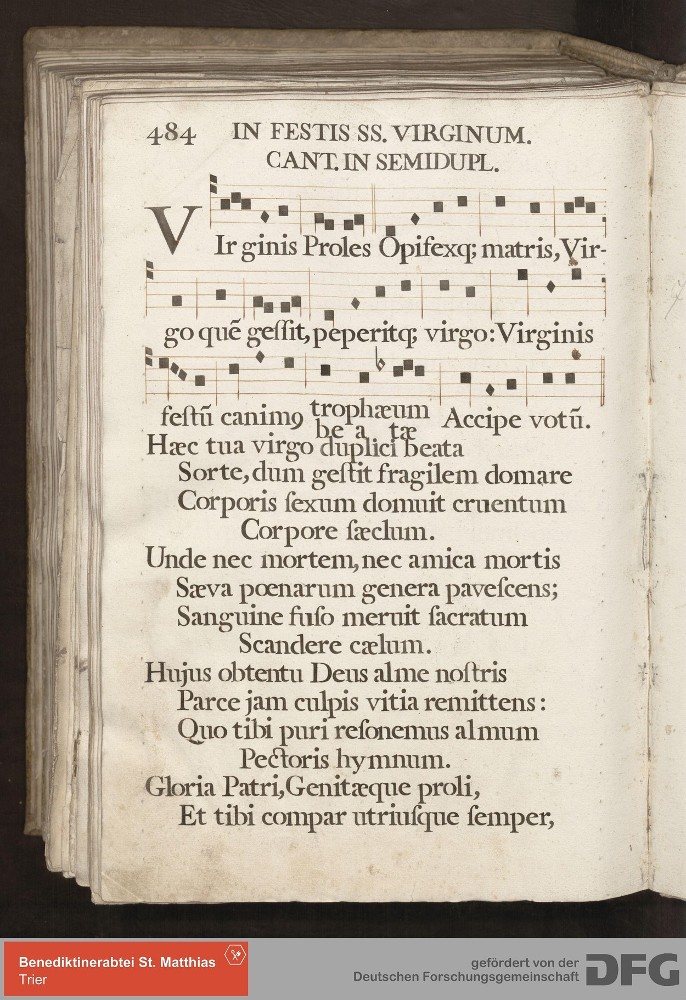 484 IN FESTIS SS. VIRGINUM.
CANT. IN SEMIDUPL.
VIr ginis Proles Opifexq; matris, Vir-
go quē geſſit, peperitq; virgo: Virginis
feſtū canimꝯ trophæum Accipe votū.
be a tæ
Hæc tua virgo duplici beata
Sorte, dum geſtit fragilem domare
Corporis ſexum domuit cruentum
Corpore ſæclum.
Unde nec mortem, nec amica mortis
Sæva pœnarum genera paveſcens;
Sanguine fuſo meruit ſacratum
Scandere cælum.
Hujus obtentu Deus alme noſtris
Parce jam culpis vitia remittens:
Quo tibi puri reſonemus almum
Pectoris hymnum.
Gloria Patri, Genitæque proli,
Et tibi compar utriuſque ſemper,
Benediktinerabtei St. Matthias
Trier
gefördert von der
Deutschen Forschungsgemeinschaft
DFG